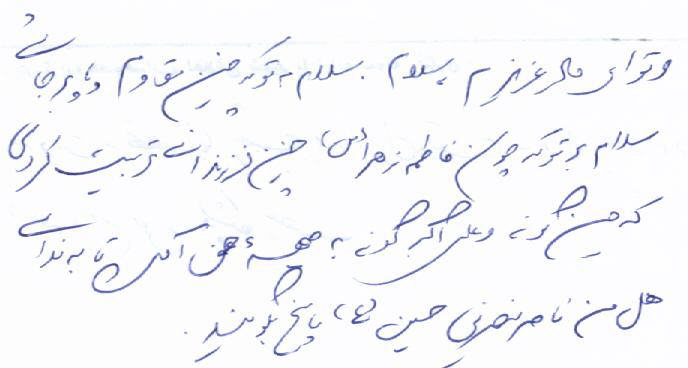 و تو ای مادر عزیزم سلام. سلام به تو که چنین مقاوم و پابرجائی
سلام بر تو که چون فاطمه زهرا (س) چنین فرزندانی تربیت کردی
که حسین گونه و علی اکبر گونه به صحنهٔ حق آمدند تا به ندای
هل من ناصر ینصرنی حسین (ع) پاسخ بگویند.